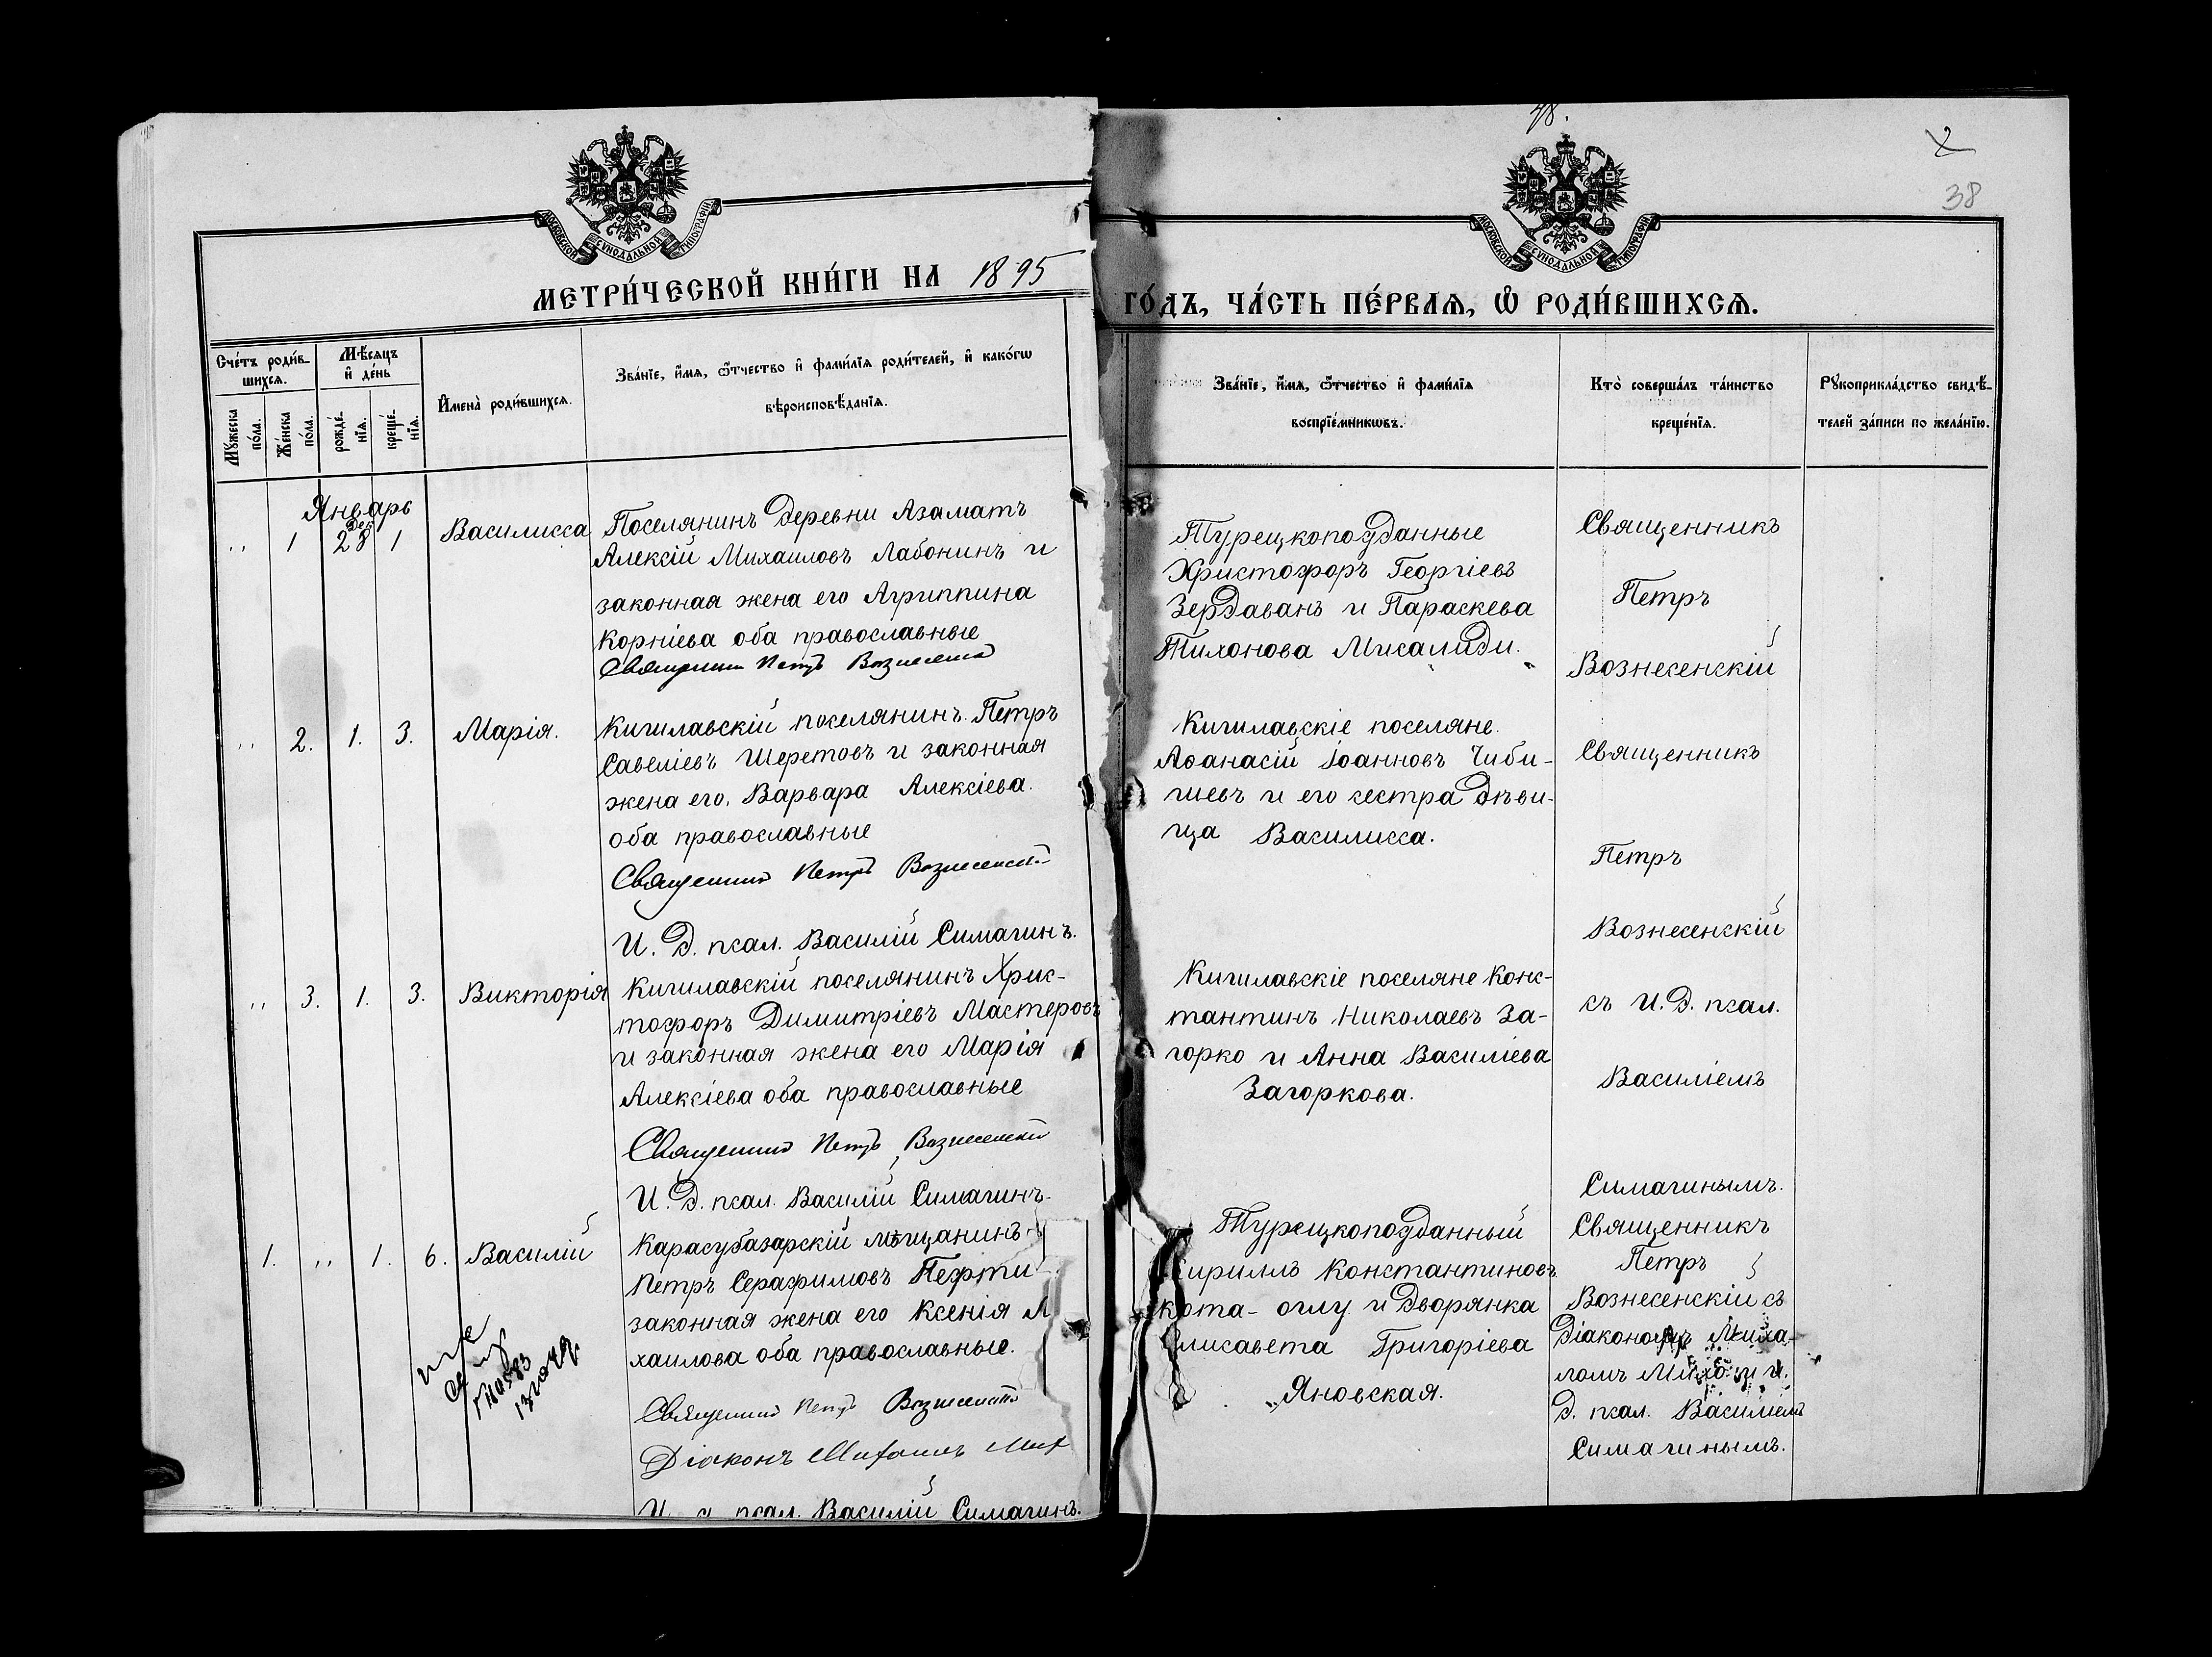 48.
2
38
МОСКОВСКОЙ СѴНОДАЛЬНОЙ ТИПОГРАФІИ
МОСКОВСКОЙ СѴНОДАЛЬНОЙ ТИПОГРАФІИ
МЕТРИ́ЧЕСКОЙ КНИ́ГИ НА 1895
ГО́ДЪ, ЧА́СТЬ ПЕ́РВАѦ, Ѡ҆ РОДИ́ВШИХСѦ.
Сче́тъ роди́в-
шихсѧ.
Мꙋ́жеска по́ла.
Же́нска по́ла.
Мѣ́сѧцъ
и҆ де́нь
рожде́-
нїѧ.
креще́-
нїѧ.
И҆мена̀ роди́вшихсѧ.
Зва́нїе, и҆́мѧ, ѻ҆́тчество и҆ фами́лїѧ роди́телей, и҆ како́гѡ
вѣроисповѣ́данїѧ.
Зва́нїе, и҆́мѧ, ѻ҆́тчество и҆ фами́лїѧ
воспрїе́мникѡвъ.
Кто̀ соверша́лъ та́инство
креще́нїѧ.
Рꙋкоприкла́дство свидѣ́-
телей за́писи по жела́нїю.
Январь
Дек.
„ 1 28 1
Василисса
Поселянинъ деревни Азаматъ
Алексій Михаиловъ Лабонинъ и
законная жена его Агриппина
Корніева оба православные
Священник Петръ Вознесенскій
Турецкоподданные
Христофоръ Георгіевъ
Зердаванъ и Параскева
Тихонова Михалиди.
Священникъ
Петръ
Вознесенскій
„ 2. 1. 3.
Марія.
Кишлавскій поселянинъ Петръ
Савеліевъ Шеретовъ и законная
жена его, Варвара Алексіева.
оба православные
Священник Петръ Вознесенскій
И. Д. псал. Василій Симагинъ.
Кишлавскіе поселяне.
Аѳанасій Іоанновъ Чиби-
шевъ и его сестра дѣви-
ца Василисса.
Священникъ
Петръ
Вознесенскій
„ 3. 1. 3.
Викторія
Кишлавскій поселянинъ Хрис-
тофоръ Димитріевъ Мастеровъ
и законная жена его Марія
Алексіева оба православные
Священник Петръ Вознесенскій
И. Д. псал. Василій Симагинъ
Кишлавскіе поселяне Конс-
тантинъ Николаевъ За-
горко и Анна Василіева
Загоркова.
съ И. Д. псал.
Василіемъ
Симагинымъ.
1. „ 1. 6.
Василій
Карасубазарскій мѣщанинъ
Петръ Серафимовъ Пефти
законная жена его Ксенія М
хаилова оба православные.
Священник Петръ Вознесенскій
Діаконъ Михаилъ Мих
И. д. псал. Василій Симагинъ.
Турецкоподданный
Кириллъ Константиновъ
Кота-оглу и Дворянка
Елисавета Григоріева
Яновская.
Священникъ
Петръ
Вознесенскій съ
Діакономъ Михаи-
ломъ и И.
Д. псал. Василіемъ
Симагинымъ.